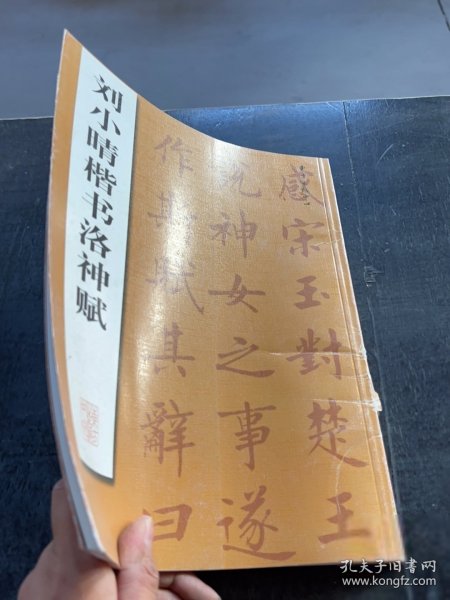 刘小晴楷书洛神赋
感宋玉對楚王
说神女之事遂
作斯赋其辭曰
孔夫子旧书网
www.kongfz.com